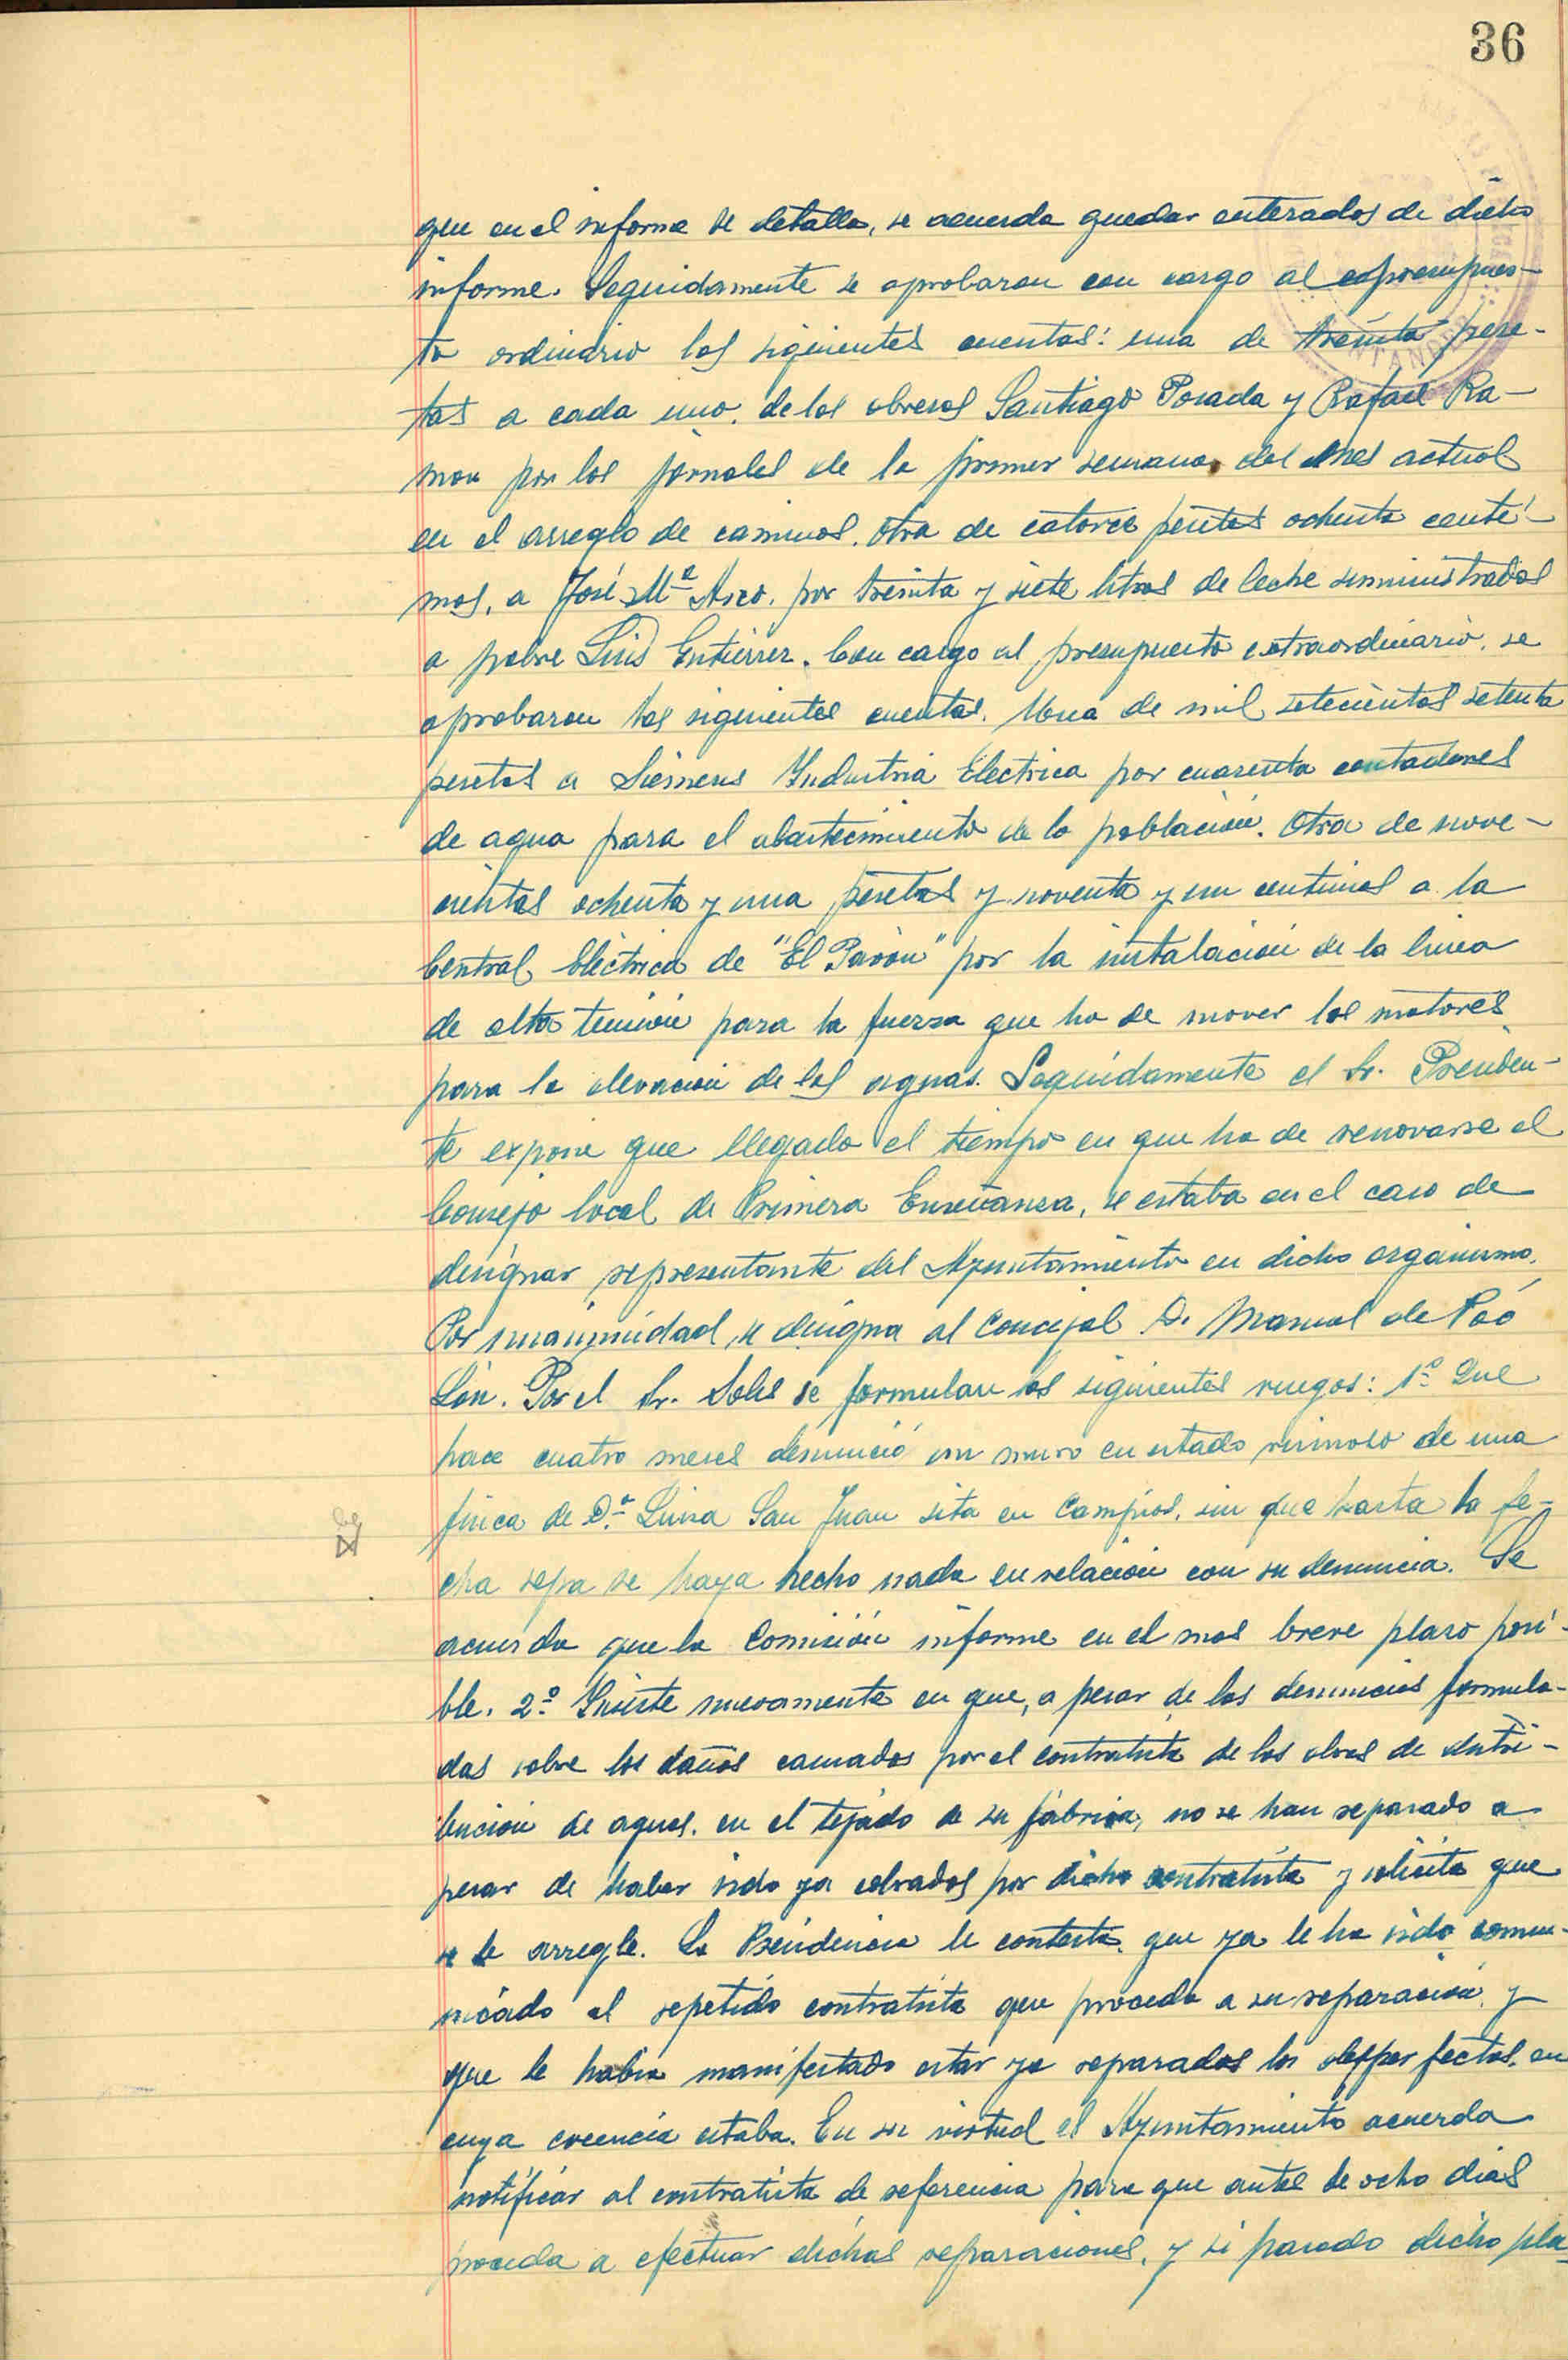 36
que en el informe se detalla, se acuerda quedar enterados de dicho
informe. Seguidamente se aprobaron con cargo al presupues-
to ordinario las siguientes cuentas: una de treinta pese-
tas a cada uno. de los obreros Santiago Posada y Rafael Ra-
mon por los jornales de la primer semana del mes actual
en el arreglo de caminos. Otra de catorce pesetas ochenta centi-
mos, a José Mª por treinta y siete litros de leche suministrados
a pobre Luis Gutierrez. Con cargo al presupuesto extraordinario, se
aprobaron las siguientes cuentas. Una de mil setecientas setenta
pesetas a Siemens Industria Electrica por cuarenta contadores
de agua para el abastecimiento de la población. Otra de nove-
cientas ochenta y una pesetas y noventa y un centimos a la
Central Eléctrica de "El" por la instalación de la linea
de alta tensión para la fuerza que ha de mover los motores
para la elevación de las aguas. Seguidamente el Sr. Presiden-
te expone que llegado el tiempo en que ha de renovarse el
Consejo local de Primera Enseñanza, se estaba en el caso de
designar representante del Ayuntamiento en dicho organismo.
Por unanimidad se designa al Concejal D. Manuel de Poó
Por el Sr. Solis se formulan los siguientes ruegos: 1º Que
hace cuatro meses denunció un muro en estado ruinoso de una
finca de Dª Luisa San Juan sita en Campios, sin que hasta la fe-
cha sepa se haya hecho nada en relación con su denuncia. Se
acuerda que la Comisión informe en el mas breve plazo posi-
ble. 2º Insiste nuevamente en que, a pesar de las denuncias formula-
das sobre los daños causados por el contratista de las obras de distri-
bucion de aguas. en el tejado de su fábrica, no se han reparado a
pesar de haber sido ya cobrados por dicho contratista y solicita que
se le arregle. La Presidencia le contesta que ya le ha sido comu-
nicado al repetido contratista que proceda a su reparación, y
que le habia manifestado estar ya reparados los desperfectos, en
cuya creencia estaba. En su virtud el Ayuntamiento acuerda
notificar al contratista de referencia para que antes de ocho dias
proceda a efectuar dichas reparaciones, y si pasado dicho pla-